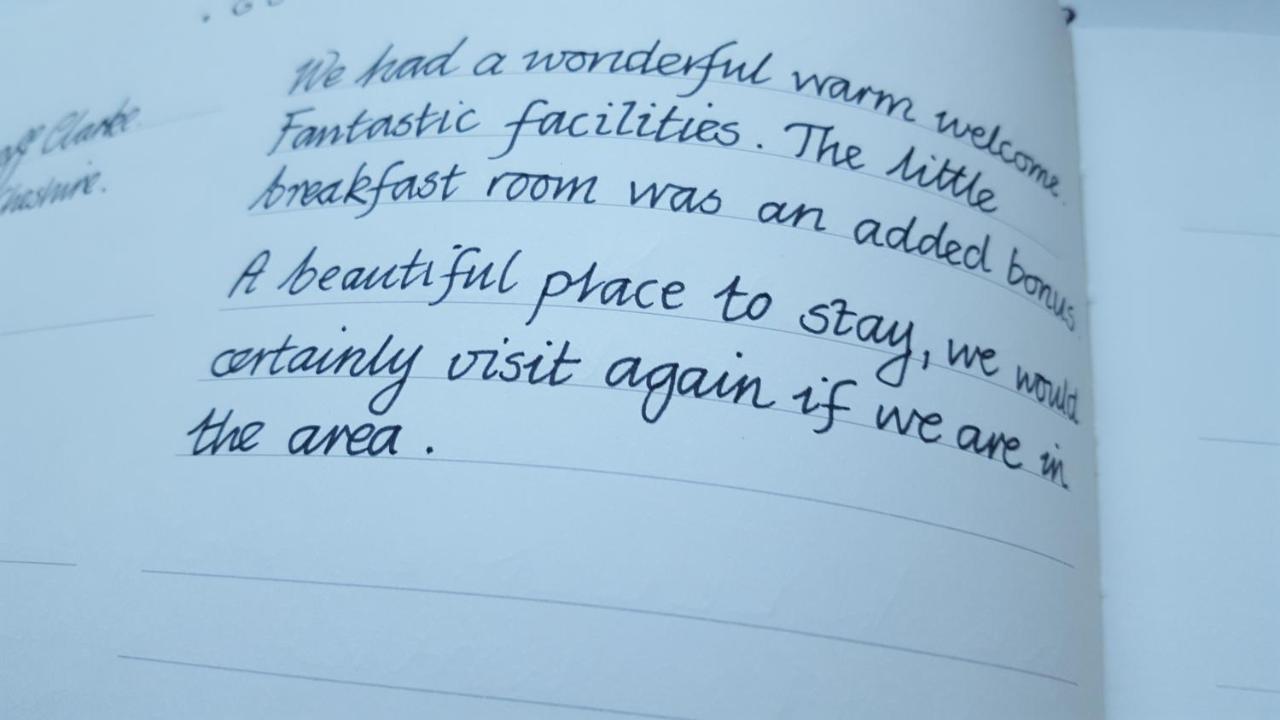 We had a wonderful warm welcome.
Fantastic facilities. The little
breakfast room was an added bonus.
A beautiful place to stay, we would
certainly visit again if we are in
the area.
Clarke
Cheshire.